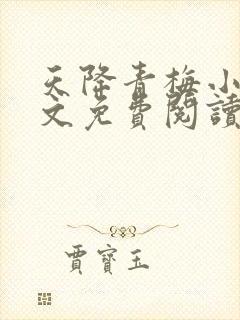 天降青梅小
文免費閱讀
賈寶玉